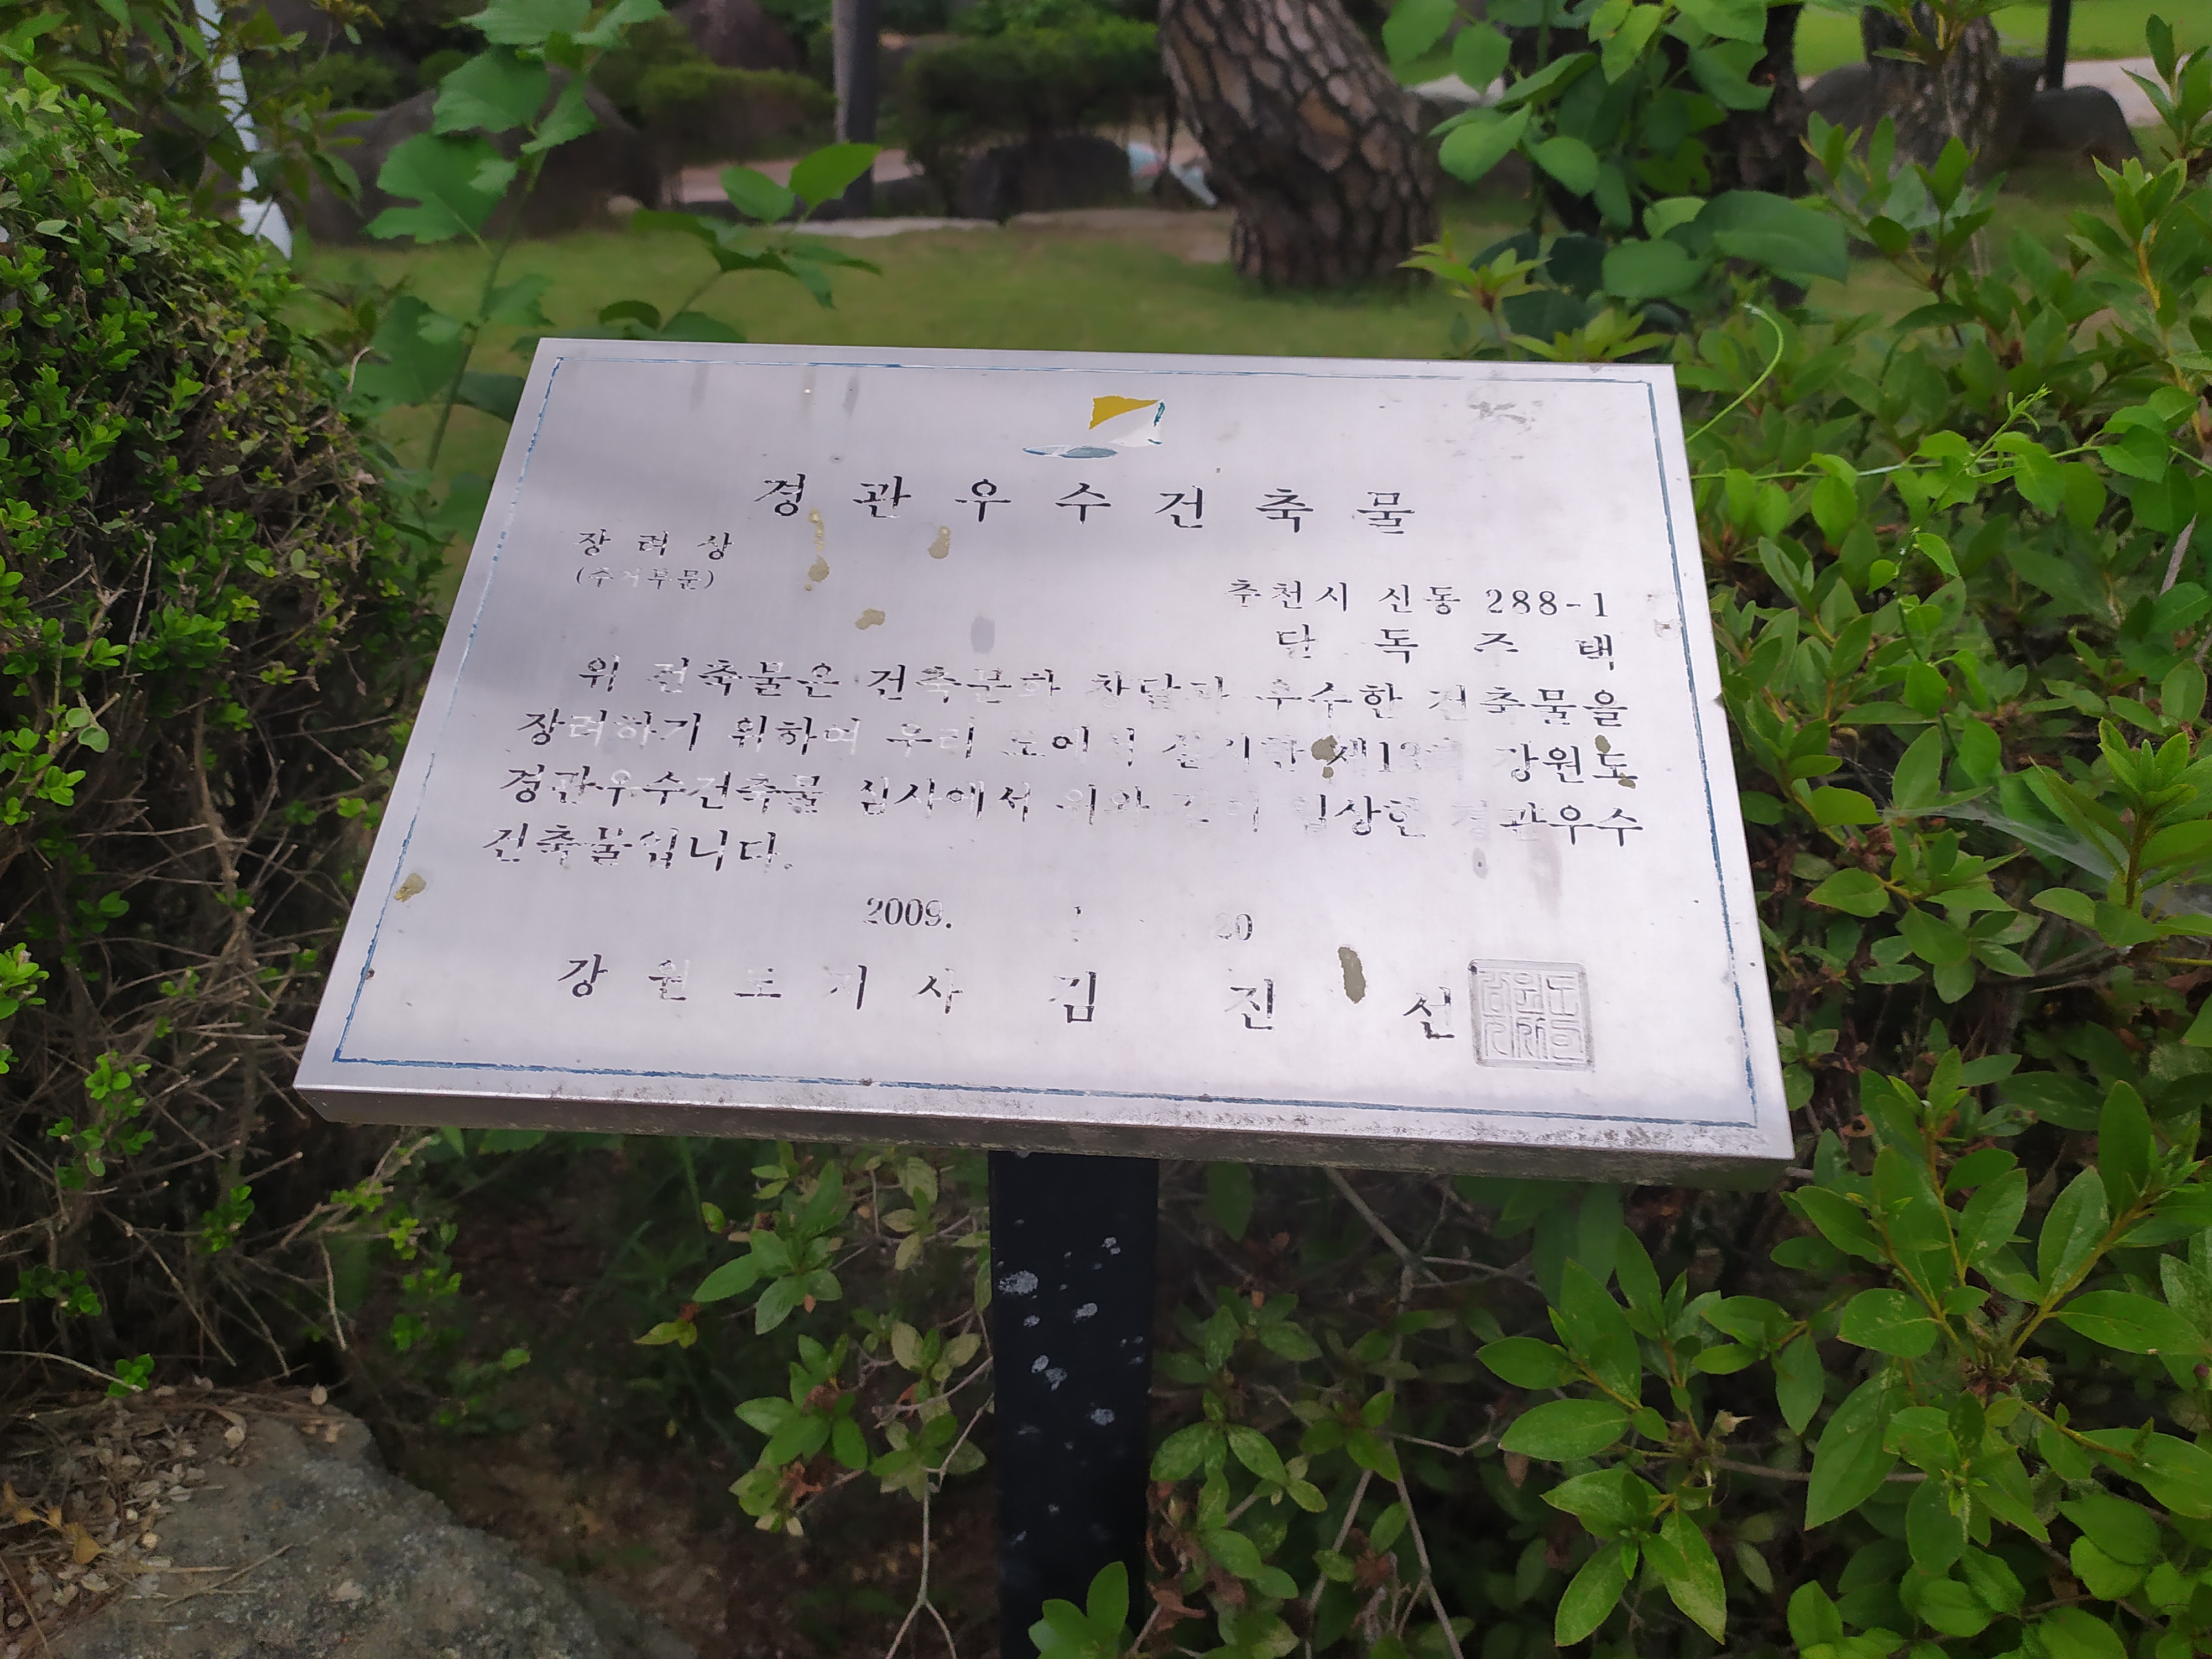 경관우수건축물
장려상
(주거부문)
춘천시 신동 288-1
단독주택
위 건축물은 건축문화 창달과 우수한 건축물을
장려하기 위하여 우리 도에서 실시한 강원도
경관우수건축물 심사에서 위와 같이 입상한 경관우수
건축물입니다.
2009. 20
강원도지사 김진선